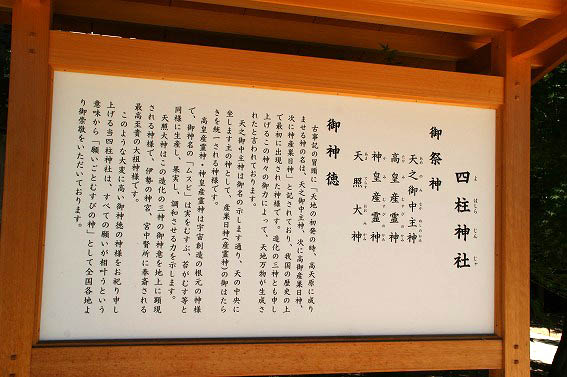 四柱神社
はしらじんじゃ
御祭神
天之御中主神
高皇産霊神
神皇産霊神
天照大神
御神徳
古事記の冒頭に「天地の初発の時、高天原に成り
ませる神の名は、天之御中主神、次に高御産巣日神、
次に神産巣日神」と記されており、我国の歴史の上
で最初に出現された神様です。造化の三神とも申し
上げるこの神々の御力によって、天地万物が生成さ
れたと言われております。
天之御中主神は御名の示します通り、天の中央に
坐します主の神として、産巣日神(産霊神)の御はたら
きを統一される神様です。
高皇産霊神・神皇産霊神は宇宙創造の根元の神様
で、御神名の「ムスビ」は実をむすぶ、苔がむす等と
同様に生産し、果実し、調和させる力を示します。
天照大神はこの造化の三神の御神意を地上に顕現
される神様で、伊勢の神宮、宮中賢所に奉斎される
最高至貴の大祖神様です。
このような大変に高い御神徳の神様をお祀り申し
上げる当四柱神社は、すべての願いが相叶うという
意味から「願いごとむすびの神」として全国各地よ
り御崇敬をいただいております。